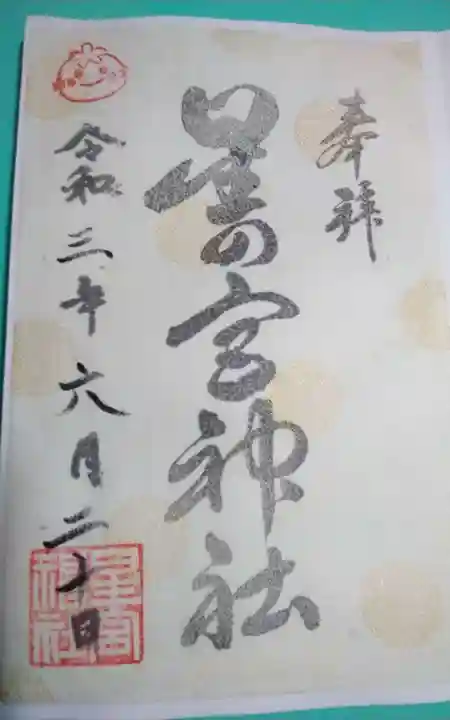 奉拝
星の宮神社
令和三年六月二十日
星宮神社